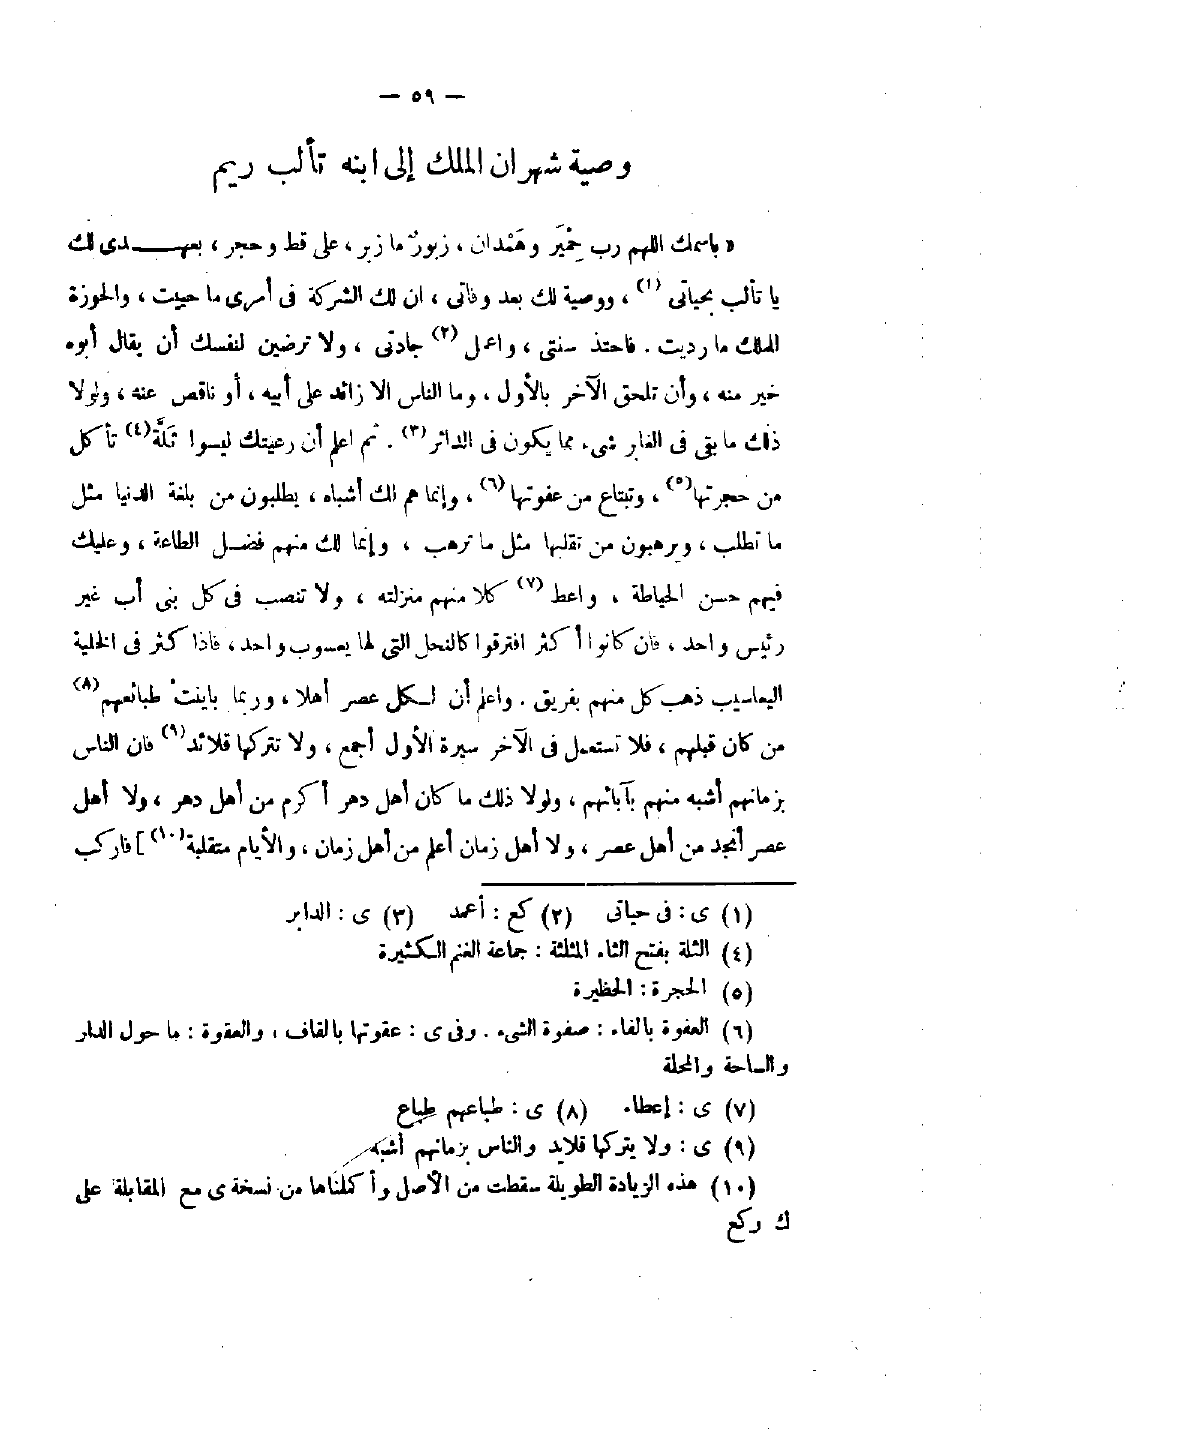 — ٥٩ —
وصية شهران الملك إلى ابنه تألب ريم
« باسمك اللهم رب حِمْيَر وهَمْدان ، زبورٌ ما زبر ، على قط وحجر ، بعهدى لك
يا تألب بحياتى (١) ، ووصية لك بعد وفاتى ، ان لك الشركة فى أمرى ما حييت ، والحوزة
الملك ما رديت . فاحتذ سنتى ، واعمل (٢) جادتى ، ولا ترضين لنفسك أن يقال أبوه
خير منه ، وأن تلحق الآخر بالأول ، وما الناس الا زائد على أبيه ، أو ناقص عنه ، ولولا
ذلك ما بقى فى الغابر شىء مما يكون فى الدائر (٣) . ثم اعلم أن رعيتك ليسوا ثَلَّة (٤) تأكل
من حجرتها (٥) ، وتبتاع من عفوتها (٦) ، وإنما هم لك أشباه ، يطلبون من بلغة الدنيا مثل
ما تطلب ، ويرهبون من تقلبها مثل ما ترهب ، وإنما لك منهم فضل الطاعة ، وعليك
فيهم حسن الحياطة ، واعط (٧) كلا منهم منزلته ، ولا تنصب فى كل بنى أب غير
رئيس واحد ، فان كانوا أكثر افترقوا كالنحل التى لها يعسوب واحد ، فاذا كثر فى الخلية
اليعاسيب ذهب كل منهم بفريق . واعلم أن لكل عصر أهلا ، وربما باينتْ طبائعهم (٨)
من كان قبلهم ، فلا تستعمل فى الآخر سيرة الأول أجمع ، ولا تتركها قلائد (٩) فان الناس
بزمانهم أشبه منهم بآبائهم ، ولولا ذلك ما كان أهل دهر أكرم من أهل دهر ، ولا أهل
عصر أنجد من أهل عصر ، ولا أهل زمان أعلم من أهل زمان ، والأيام متقلبة (١٠) ] فاركب
(١) ى : فى حياتى (٢) كع : أعمد (٣) ى : الدابر
(٤) الثلة بفتح الثاء المثلثة : جماعة الغنم الكثيرة
(٥) الحجرة : الحظيرة
(٦) العفوة بالفاء : صفوة الشىء . وفى ى : عقوتها بالقاف ، والعقوة : ما حول الدار
والساحة والمحلة
(٧) ى : إعطاء (٨) ى : طباعهم طباع
(٩) ى : ولا يتركها قلايد والناس بزمانهم أشبه
(١٠) هذه الزيادة الطويلة سقطت من الأصل وأكملناها من نسخة ى مع المقابلة على
ك وكع